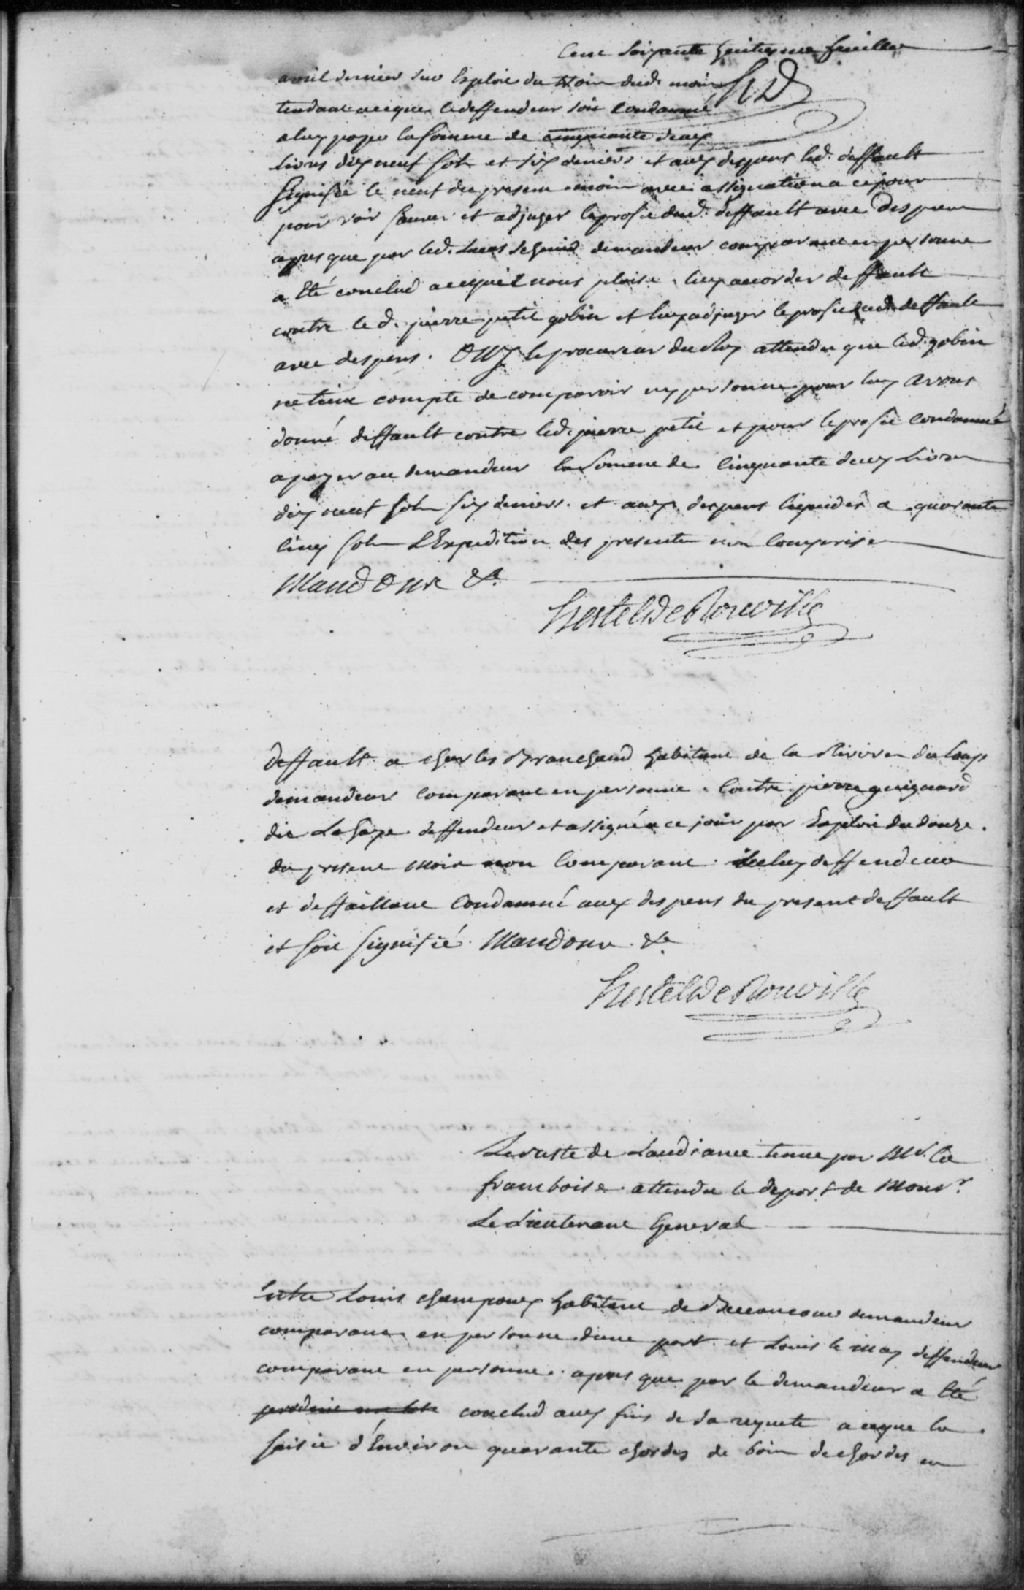 Cent Soixante huitieme feuillet
avril dernier sur Exploit du trois dud. mois
tendante aceque le deffendeur soit Condamné
a luy payer la somme de cinquante deux
Livres dix neuf sols et six deniers et aux despens led. deffault
signifié le neuf du present mois avec assignation a ce jour
pour voir sauver et adjuger le profit dud. deffault avec despens
apres que par led. demandeur comparant en personne
a Eté conclud acequil nous plaise luy accorder deffault
contre led. pierre petit gobin et luy adjuger le profit dud. deffault
avec despens. Ouy le procureur du Roy attendu que led. gobin
ne tient compte de comparoir ny personne pour luy avons
donné deffault contre led. pierre petit et pour le profit condamné
a payer au demandeur la somme de cinquante deux Livres
dix neuf sols six deniers et aux despens liquidés a quarante
cinq sols L'Expedition des presente non comprise
Mandons &a.
Hertel De Rouville
deffault a charles Branchaud habitant de la Riviere du Loup
demandeur comparant en personne. Contre pierre guignard
dit deffendeur et assigné a ce jour par Exploit du douze
du present mois non Comparant. Iceluy deffendeur
et deffaillant Condamné aux despens du present deffault
et soit signifié. Mandons &a
Hertel De Rouville
Le reste de L'audiance tenue par Mr. La
framboise attendu le deport de Monsr.
Le Lieutenant General
Entre Louis champoux habitant de Beccancour demandeur
comparant en personne d'une part et Louis le may deffendeur
comparant en personne. apres que par le demandeur a Eté
conclud aux fins de sa requete a ceque la
saisie d'Environ quarante chordes de bois de chordes en